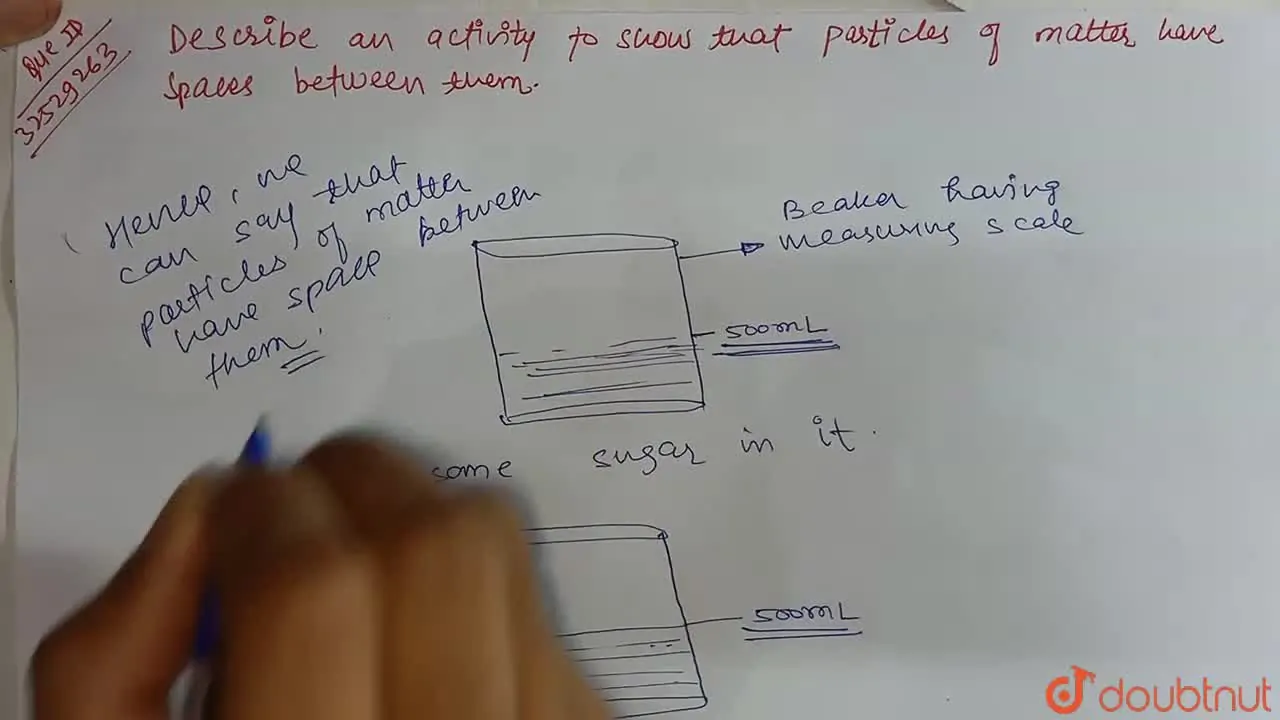 Que ID
32529263
Describe an activity to show that particles of matter have
spaces between them.
Hence, we
can say that
particles of matter
have space between
them.
Beaker having
measuring scale
500mL
some sugar in it.
500mL
doubtnut